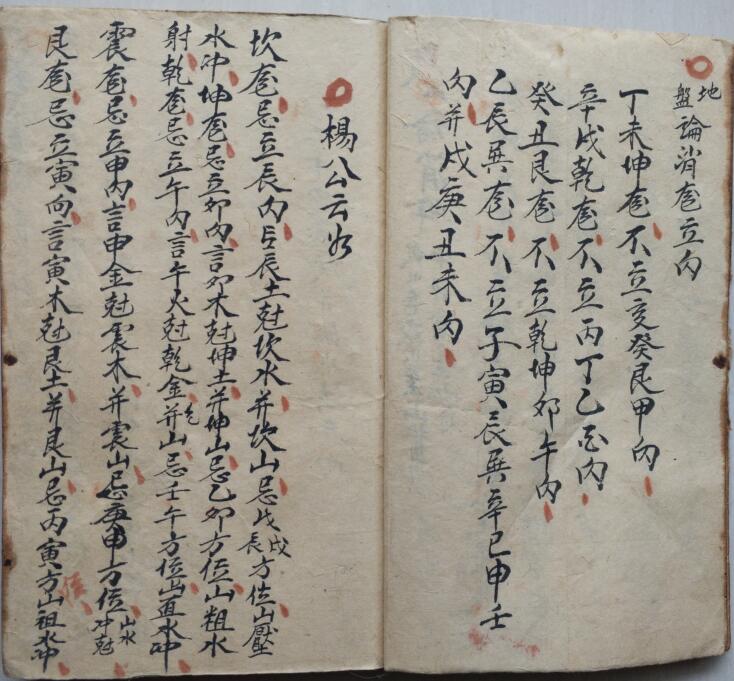 地盤論消庖立向
丁未坤庖不立亥癸艮甲向
辛戌乾庖不立丙丁乙酉向
癸丑艮庖不立乾坤卯午向
乙辰巽庖不立子寅辰巽辛巳申壬
向并戌庚丑未向
楊公云
坎庖忌立辰向言辰土尅坎水并坎山忌戊辰戌方位山壓
水冲坤庖忌立卯向言卯木尅坤土并坤山忌乙卯方位山粗水
射乾庖忌立午向言午火尅乾金并乾山忌壬午方位山直水冲
震庖忌立申向言申金尅震木并震山忌庚申方位山水冲尅
艮庖忌立寅向言寅木尅艮土并艮山忌丙寅方位山粗水冲